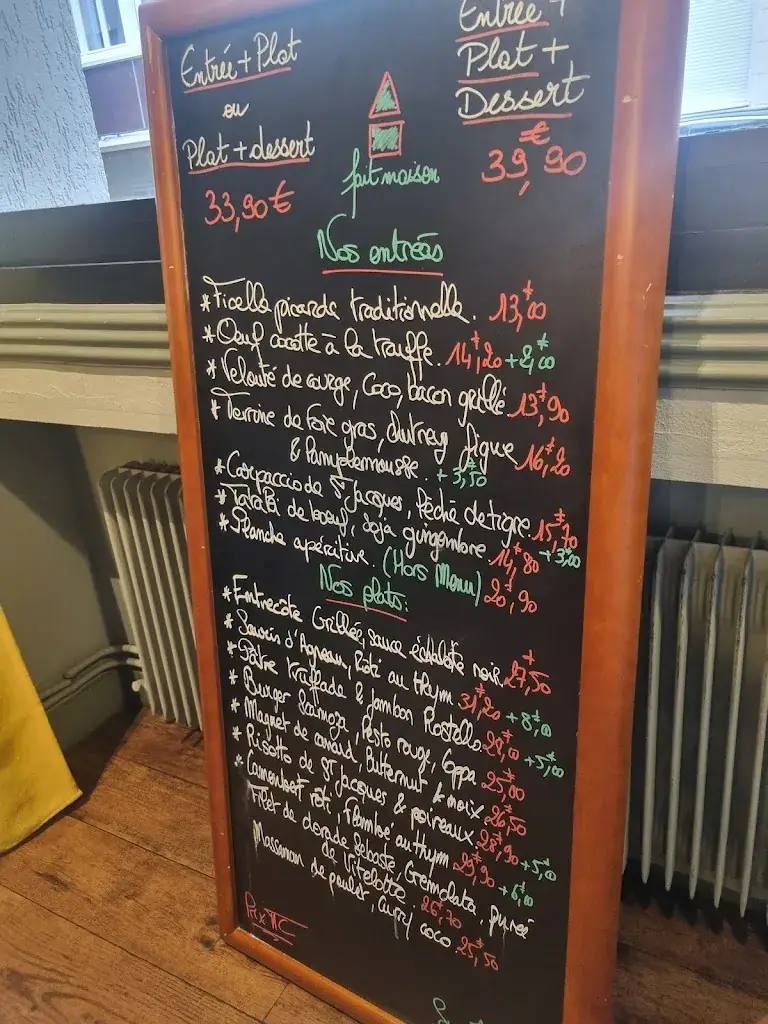 Entrée + Plat
ou
Plat + dessert
33,90 €
Entrée +
Plat +
Dessert
€
39,90
fait maison
Nos entrées
* Ficelle picarde traditionnelle. 13,00
* Oeuf cocotte à la truffe. 14,20 + 2,00
* Velouté de courge, Coco, bacon grillé 13,90
* Terrine de foie gras, chutney figue 16,20
& Pamplemousse. + 3,50
* Carpaccio de St Jacques, Pêche de tigre. 15,70
* Tataki de boeuf, soja gingembre 14,80 + 3,00
* Planche apéritive. (Hors Menu) 20,90
Nos plats:
* Entrecôte Grillée, sauce échalote noix 27,50
* Souris d'Agneau, Rôti au thym 31,20 + 8,00
* Pâtre truffade & Jambon Rostello + 5,00
* Burger Scamoza, Pesto rouge, Coppa 25,00
* Magret de canard, Butternut & noix 26,50
* Risotto de St Jacques & poireaux. 28,90 + 5,00
* Camembert rôti, Flambé au thym 23,90 + 6,00
Filet de dorade Sébaste, Gremolata, purée
de Vitelotte. 26,70
Massaman de poulet, Curry coco 25,50
Prix TTC